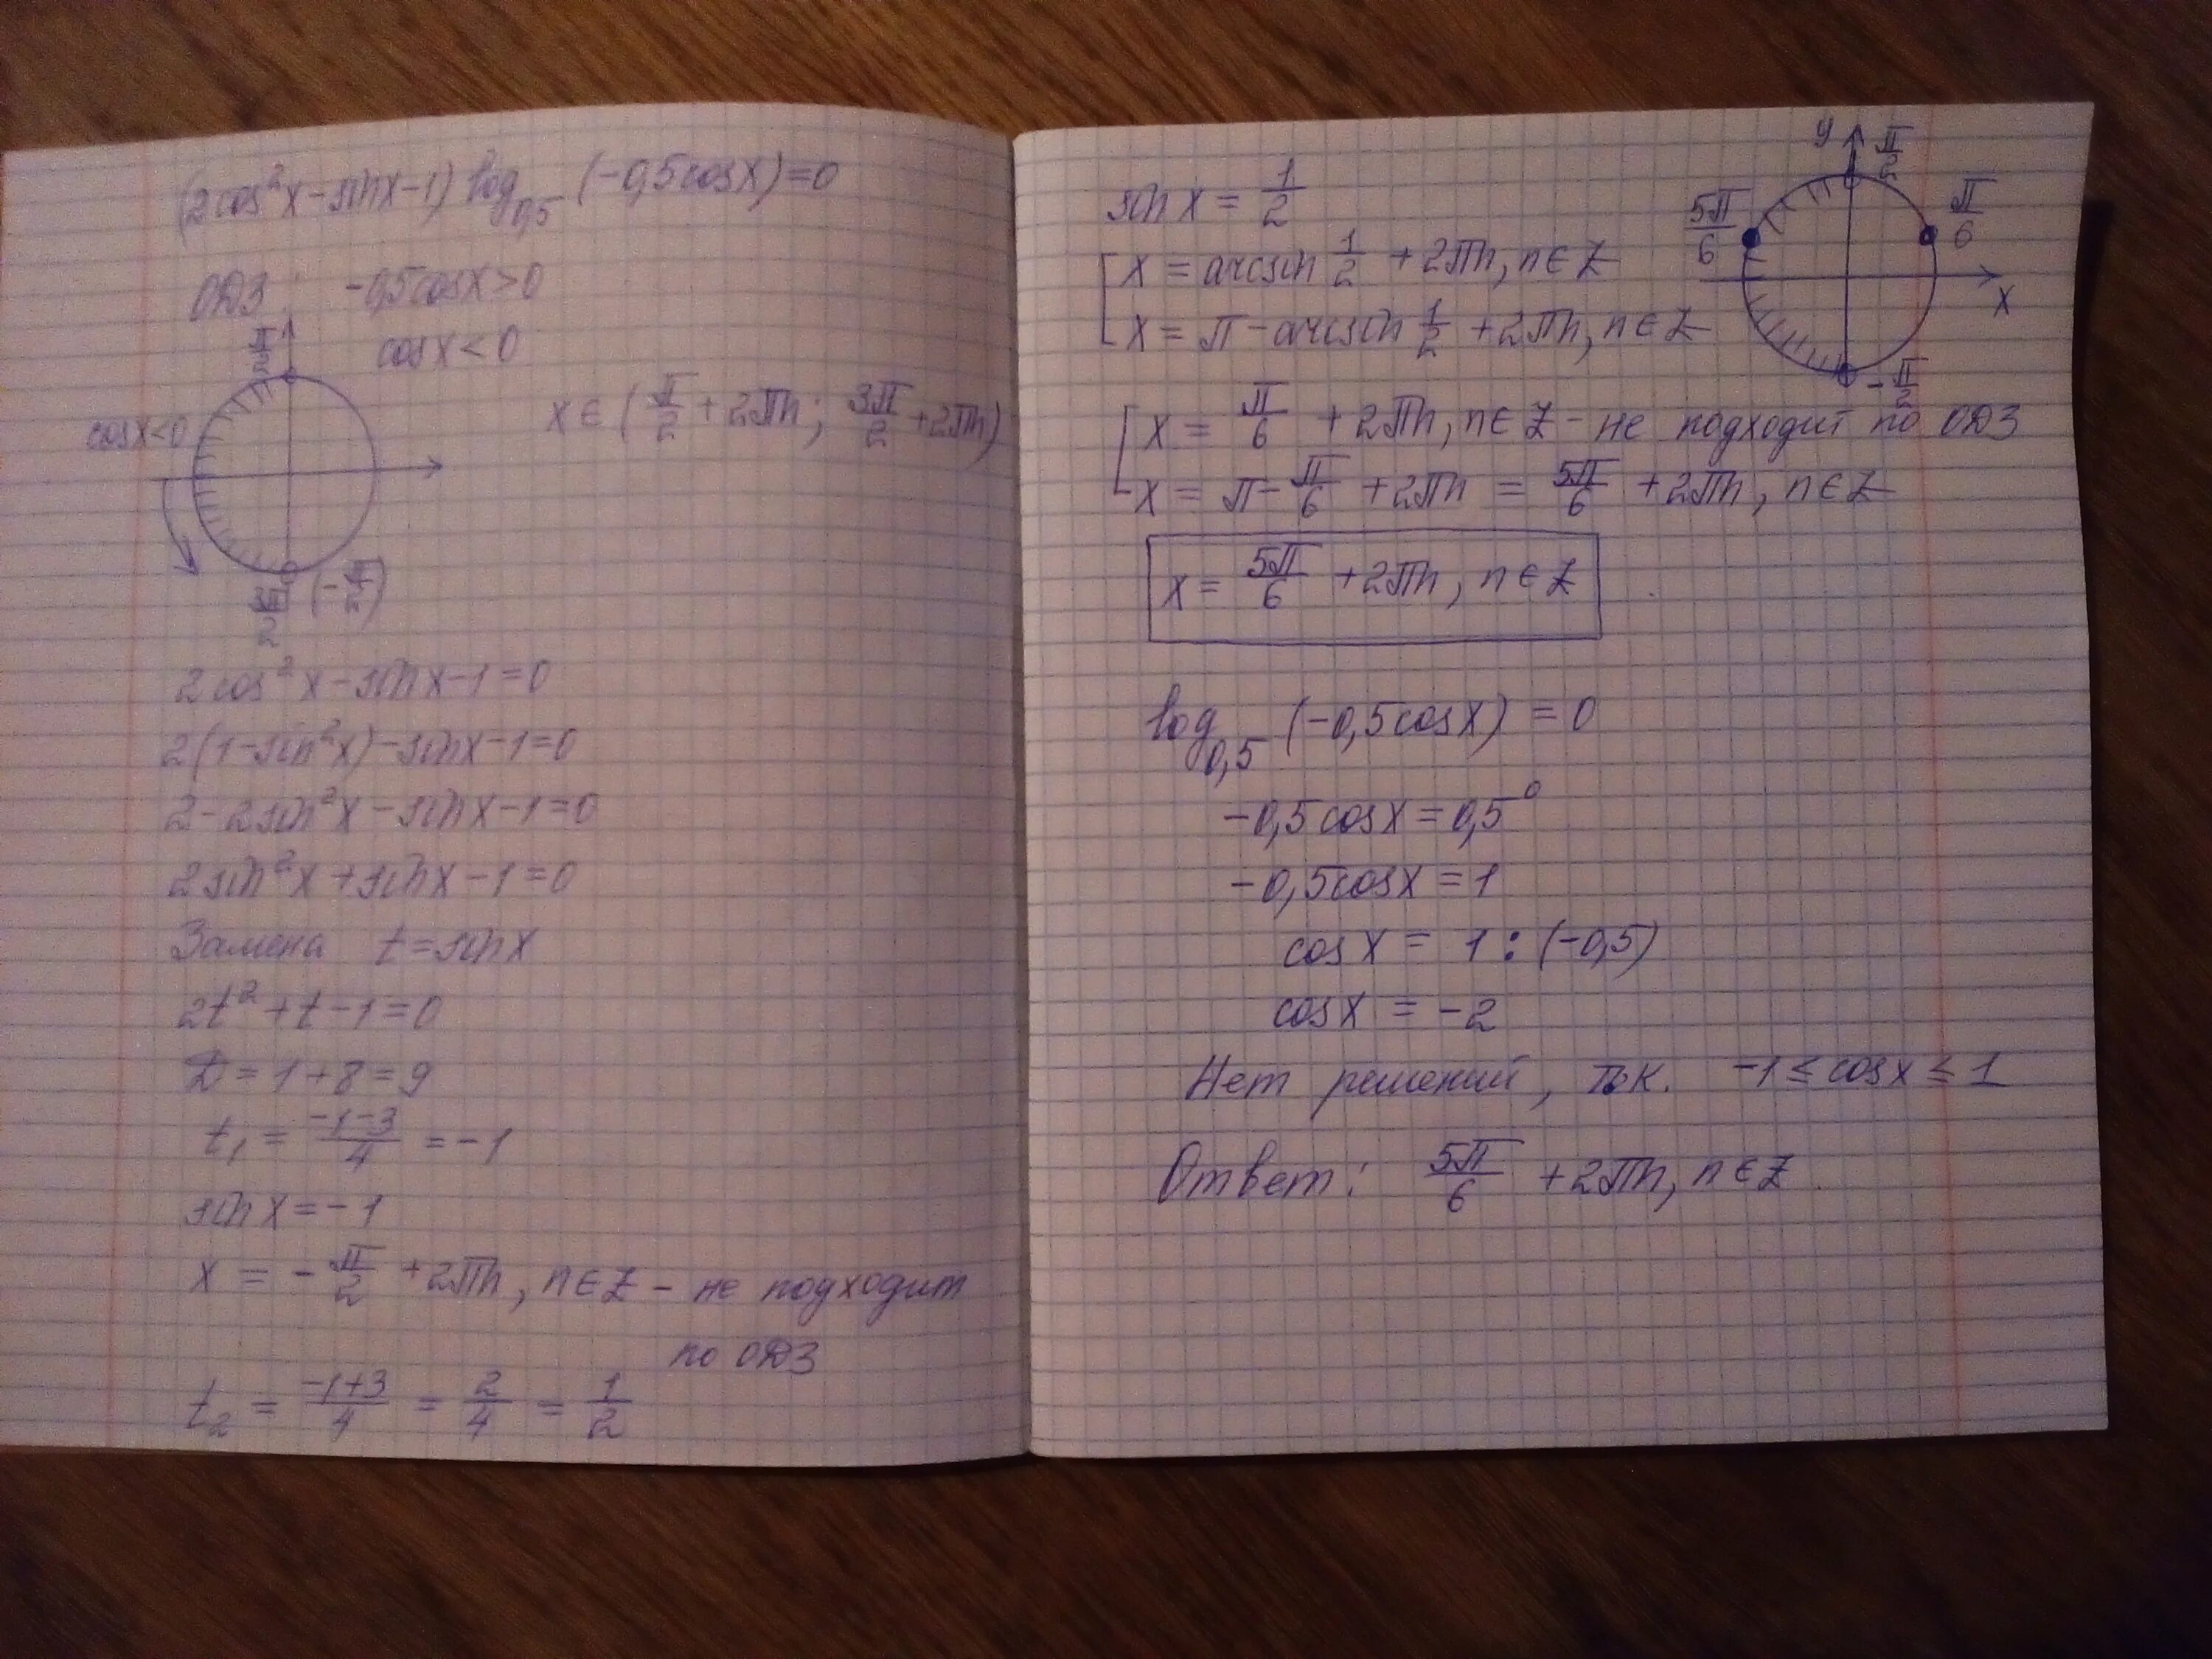 (2cos²x-sinx-1) log₀,₅ (-0,5cosx)=0
ОДЗ : -0,5cosx>0
cosx<0
π/2
cosx<0
x ∈ (π/2 + 2πn; 3π/2 + 2πn)
3π/2 (-π/2)
2cos²x-sinx-1=0
2(1-sin²x)-sinx-1=0
2-2sin²x-sinx-1=0
2sin²x+sinx-1=0
Замена t=sinx
2t²+t-1=0
D=1+8=9
t₁ = (-1-3)/4 = -1
sinx=-1
x = -π/2 + 2πn, n∈Z - не подходит
по ОДЗ
t₂ = (-1+3)/4 = 2/4 = 1/2
sinx = 1/2
[ x = arcsin 1/2 + 2πn, n∈Z
x = π - arcsin 1/2 + 2πn, n∈Z
y
π/2
5π/6
π/6
x
-π/2
[ x = π/6 + 2πn, n∈Z - не подходит по ОДЗ
x = π - π/6 + 2πn = 5π/6 + 2πn, n∈Z
x = 5π/6 + 2πn, n∈Z
log₀,₅ (-0,5cosx) = 0
-0,5cosx = 0,5⁰
-0,5cosx = 1
cosx = 1 : (-0,5)
cosx = -2
Нет решений, т.к. -1 ≤ cosx ≤ 1
Ответ: 5π/6 + 2πn, n∈Z.